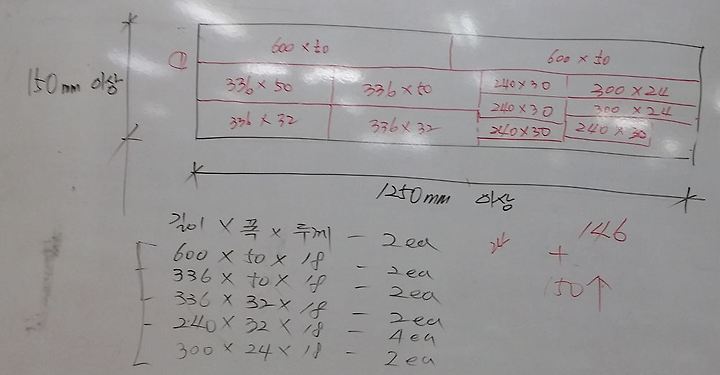 600 × 50 600 × 50
① 336 × 50 336 × 50 240×30 300 × 24
150mm 이상
240×30 300 × 24
336 × 32 336 × 32 240×30 240 × 30
1250mm 이상
길이 × 폭 × 두께 - 2ea
146
600 × 50 × 18 - 2ea
+
336 × 50 × 18 - 2ea
150↑
336 × 32 × 18 - 2ea
240 × 32 × 18 - 4ea
300 × 24 × 18 - 2ea